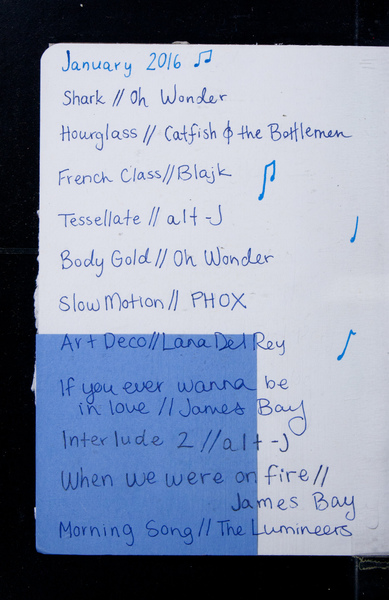 January 2016 ♫
Shark // Oh Wonder
Hourglass // Catfish & the Bottlemen
French Class // Blajk
Tessellate // alt-J
Body Gold // Oh Wonder
Slow Motion // PHOX
Art Deco // Lana Del Rey
If you ever wanna be
in love // James Bay
Interlude 2 // alt-J
When we were on fire //
James Bay
Morning Song // The Lumineers